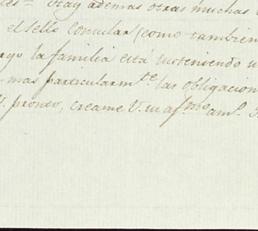 Hay ademas otras muchas
el sello consular (como tambien
la familia está sosteniendo
mas particularm.te las obligacion
pronto, creame V. su af.mo am.o